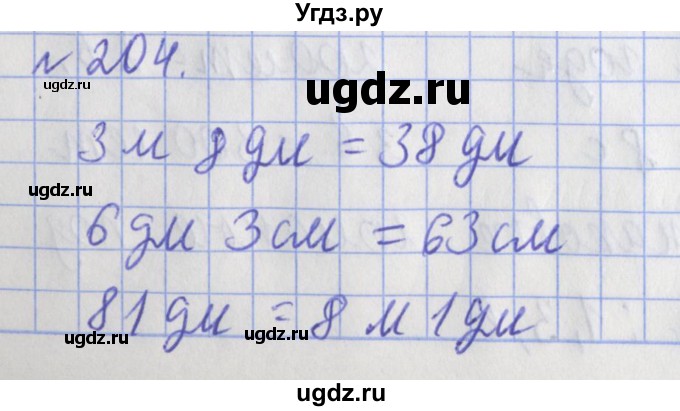 Угдз.ру
№ 204.
ugdz.ru
ugdz.ru
3 м 8 дм = 38 дм
ugdz.ru
6 дм 3 см = 63 см
81 дм = 8 м 1 дм
ugdz.ru
ugdz.ru
ugdz.ru
ugdz.ru